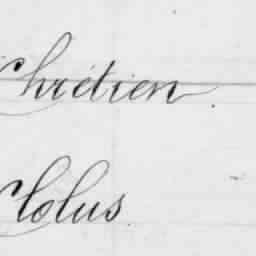 Chrétien.
Colus